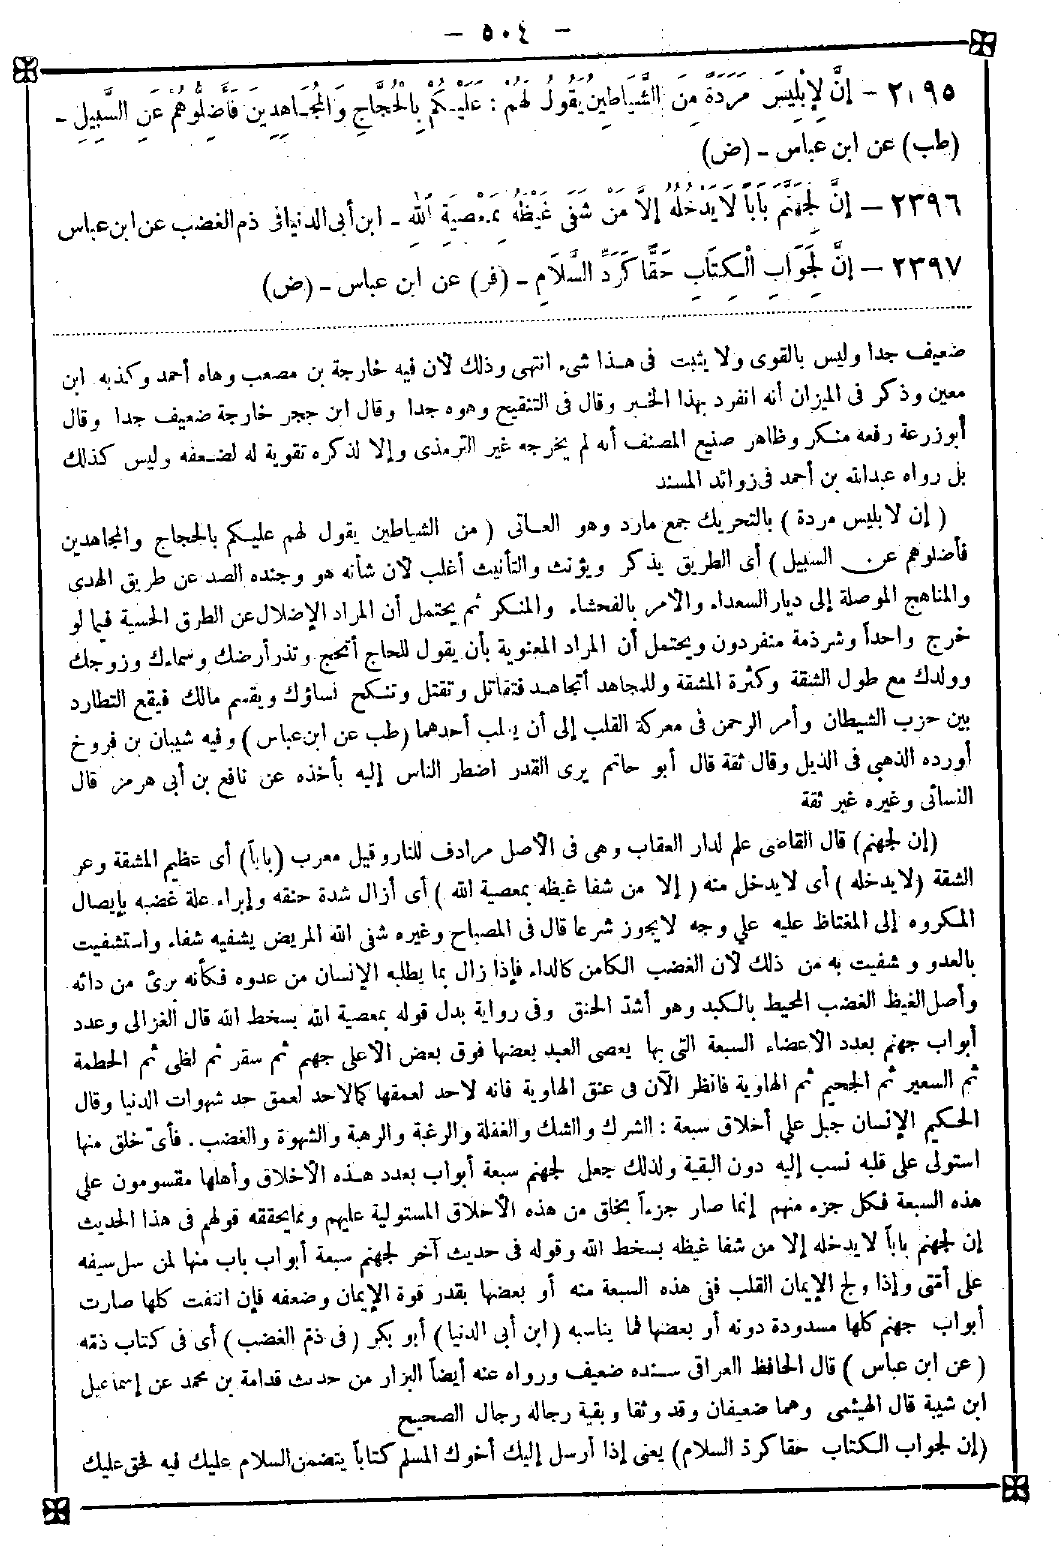 - ٥٠٤ -
٢٣٩٥ - إنَّ لِإِبْلِيسَ مَرَدَةً مِنَ الشَّيَاطِينِ يَقُولُ لَهُمْ : عَلَيْكُمْ بِالْحُجَّاجِ وَالْمُجَاهِدِينَ فَأَضِلُّوهُمْ عَنِ السَّبِيلِ -
(طب) عن ابن عباس - (ض)
٢٣٩٦ - إنَّ لِجَهَنَّمَ بَاباً لَا يَدْخُلُهُ إلَّا مَنْ شَفَى غَيْظَهُ بِمَعْصِيَةِ اللهِ - ابن أبى الدنيا فى ذم الغضب عن ابن عباس
٢٣٩٧ - إنَّ لِجَوَابِ الْكِتَابِ حَقًّا كَرَدِّ السَّلَامِ - (فر) عن ابن عباس - (ض)
ضعيف جدا وليس بالقوى ولا يثبت فى هذا شىء انتهى وذلك لأن فيه خارجة بن مصعب وهاه أحمد وكذبه ابن
معين وذكر فى الميزان أنه انفرد بهذا الخبر وقال فى التنقيح وهوه جدا وقال ابن حجر خارجة ضعيف جدا وقال
أبوزرعة رفعه منكر وظاهر صنيع المصنف أنه لم يخرجه غير الترمذى وإلا لذكره تقوية له لضعفه وليس كذلك
بل رواه عبدالله بن أحمد فى زوائد المسند
( إن لابليس مردة ) بالتحريك جمع مارد وهو العاتى ( من الشياطين يقول لهم عليكم بالحجاج والمجاهدين
فأضلوهم عن السبيل ) أى الطريق يذكر ويؤنث والتأنيث أغلب لأن شأنه هو وجنده الصد عن طريق الهدى
والمناهج الموصلة إلى ديار السعداء والأمر بالفحشاء والمنكر ثم يحتمل أن المراد الإضلال عن الطرق الحسية فيما لو
خرج واحداً وشرذمة منفردون ويحتمل أن المراد المعنوية بأن يقول للحاج أتحج وتذر أرضك وسماءك وزوجك
وولدك مع طول الشقة وكثرة المشقة وللمجاهد أتجاهد فتقاتل وتقتل وتنكح نساؤك ويقسم مالك فيقع التطارد
بين حزب الشيطان وأمر الرحمن فى معركة القلب إلى أن يغلب أحدهما (طب عن ابن عباس ) وفيه شيبان بن فروخ
أورده الذهبى فى الذيل وقال ثقة قال أبو حاتم يرى القدر اضطر الناس إليه بأخذه عن نافع بن أبى هرمز قال
النسائى وغيره غير ثقة
(إن لجهنم) قال القاضى علم لدار العقاب وهى فى الأصل مرادف للنار وقيل معرب (باباً) أى عظيم المشقة وعر
الشقة (لايدخله ) أى لا يدخل منه ( إلا من شفا غيظه بمعصية الله ) أى أزال شدة حنقه وإبراء علة غضبه بإيصال
المكروه إلى المغتاظ عليه على وجه لايجوز شرعا قال فى المصباح وغيره شفى الله المريض يشفيه شفاء واستشفيت
بالعدو وشفيت به من ذلك لأن الغضب الكامن كالداء فإذا زال بما يطلبه الإنسان من عدوه فكأنه برئ من دائه
وأصل الغيظ الغضب المحيط بالكبد وهو أشد الحنق وفى رواية بدل قوله بمعصية الله بسخط الله قال الغزالى وعدد
أبواب جهنم بعدد الأعضاء السبعة التى بها يعصى العبد بعضها فوق بعض الأعلى جهنم ثم سقر ثم لظى ثم الحطمة
ثم السعير ثم الجحيم ثم الهاوية فانظر الآن فى عمق الهاوية فانه لاحد لعمقها كمالاحد لعمق حد شهوات الدنيا وقال
الحكيم الإنسان جبل على أخلاق سبعة : الشرك والشك والغفلة والرغبة والرهبة والشهوة والغضب . فأىّ خلق منها
استولى على قلبه نسب إليه دون البقية ولذلك جعل لجهنم سبعة أبواب بعدد هذه الأخلاق وأهلها مقسومون على
هذه السبعة فكل جزء منهم إنما صار جزءاً بخلق من هذه الأخلاق المستولية عليهم ومما يحققه قولهم فى هذا الحديث
إن لجهنم باباً لايدخله إلا من شفا غيظه بسخط الله وقوله فى حديث آخر لجهنم سبعة أبواب باب منها لمن سل سيفه
على أمتى وإذا ولج الإيمان القلب ففى هذه السبعة منه أو بعضها بقدر قوة الإيمان وضعفه فإن انتفت كلها صارت
أبواب جهنم كلها مسدودة دونه أو بعضها فما يناسبه (ابن أبى الدنيا ) أبو بكر ( فى ذم الغضب ) أى فى كتاب ذمه
( عن ابن عباس ) قال الحافظ العراقى سنده ضعيف ورواه عنه أيضاً البزار من حديث قدامة بن محمد عن إسماعيل
ابن شيبة قال الهيثمى وهما ضعيفان وقد وثقا وبقية رجاله رجال الصحيح
(إن لجواب الكتاب حقا كرد السلام) يعنى إذا أرسل إليك أخوك المسلم كتاباً يتضمن السلام عليك فيه فحق عليك